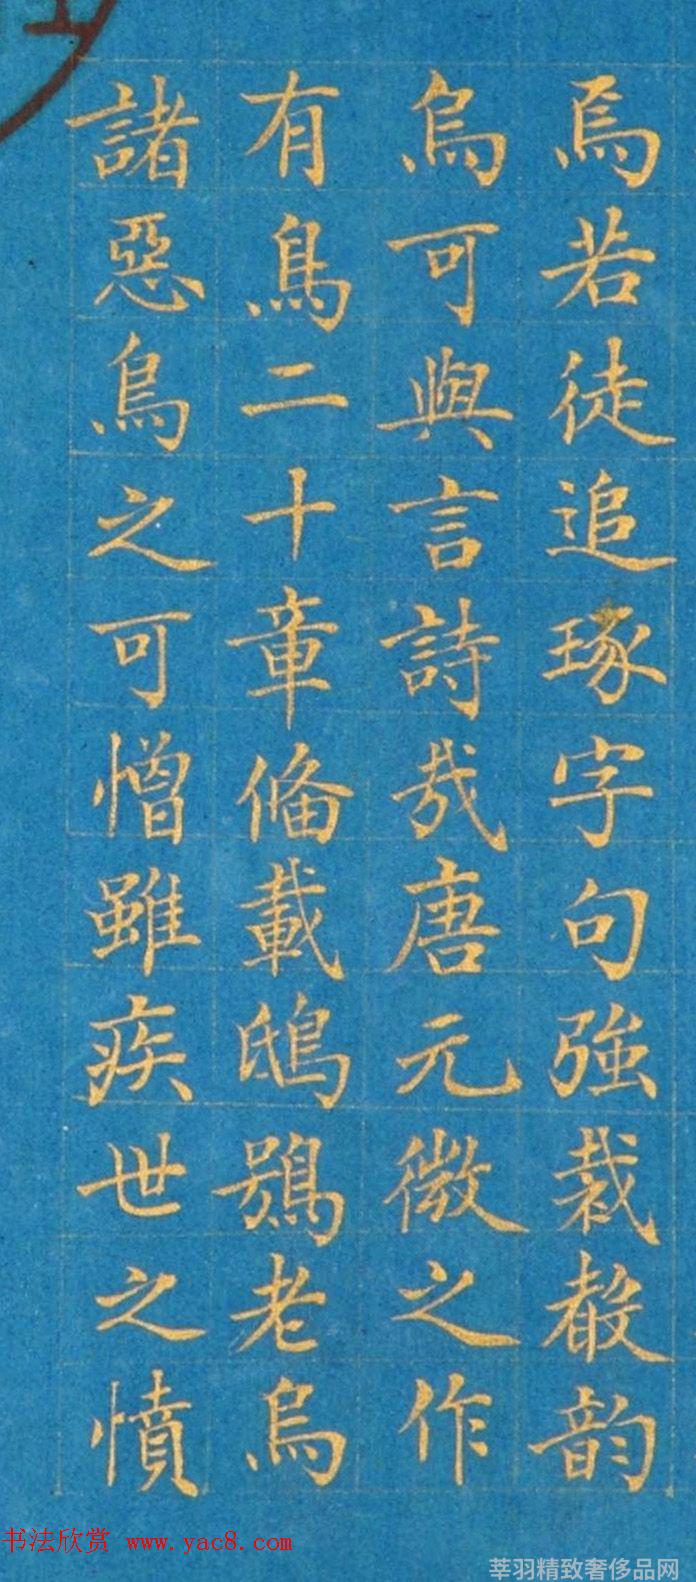 焉若徒追琢字句強裁散韵
烏可與言詩哉唐元微之作
有鳥二十章俻載鴟鴞老烏
諸惡鳥之可憎雖疾世之憤
书法欣赏 www.yac8.com
莘羽精致奢侈品网